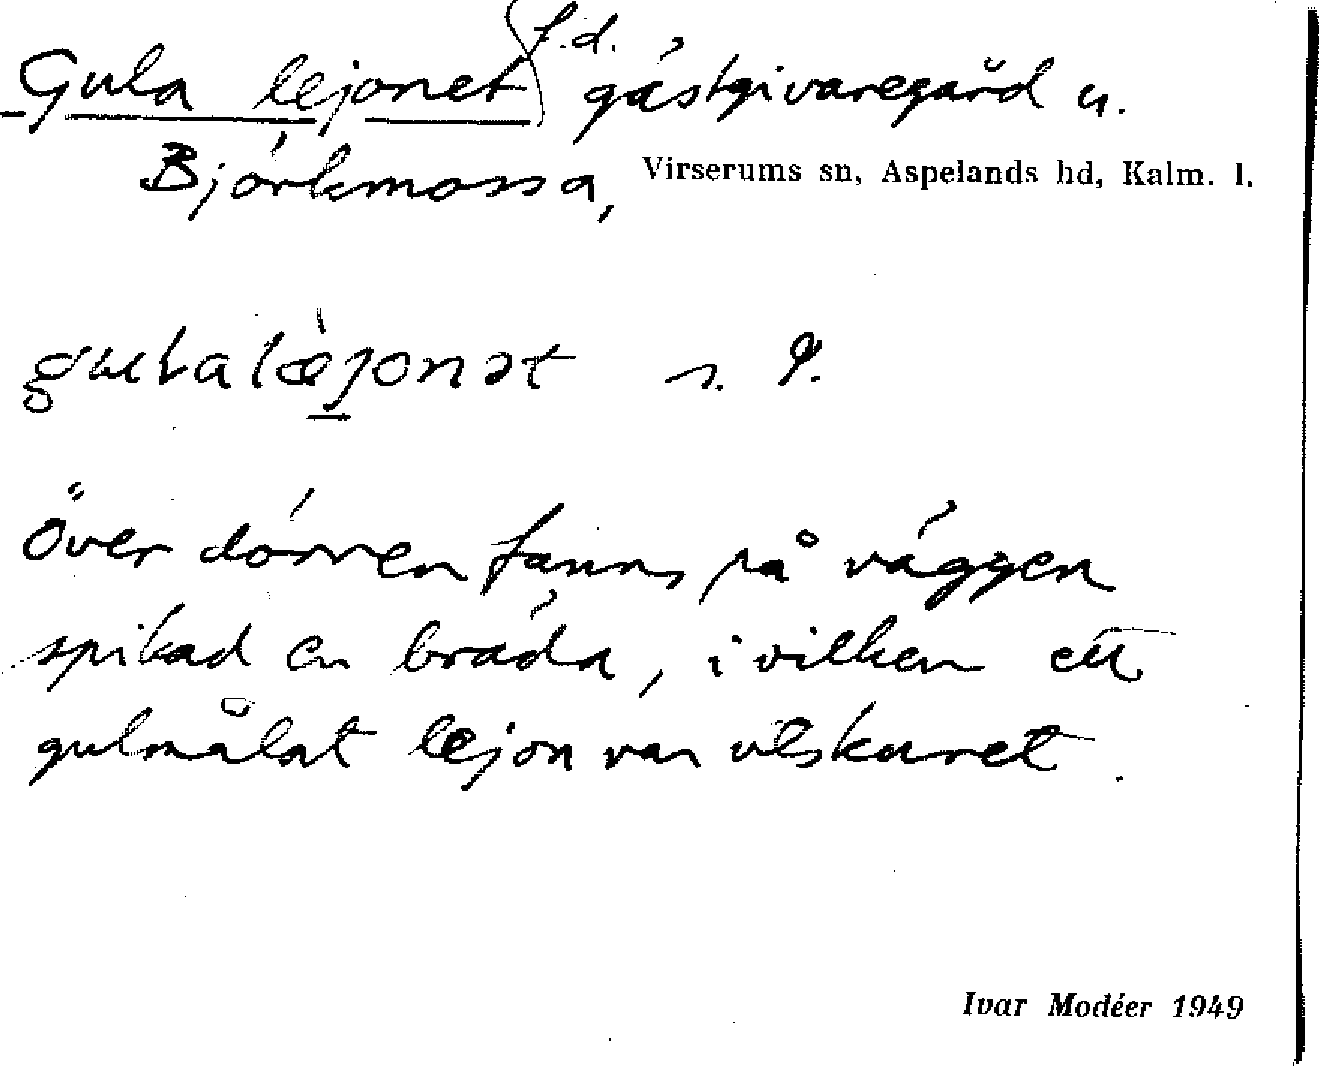 Gula lejonet f.d. gästgivaregård u.
Björkmossa, Virserums sn, Aspelands hd, Kalm. l.
gulalæ̀jonət s. P.
Över dörren fanns på väggen
spikad en bräda, i vilken ett
gulmålat lejon var utskuret.
Ivar Modéer 1949